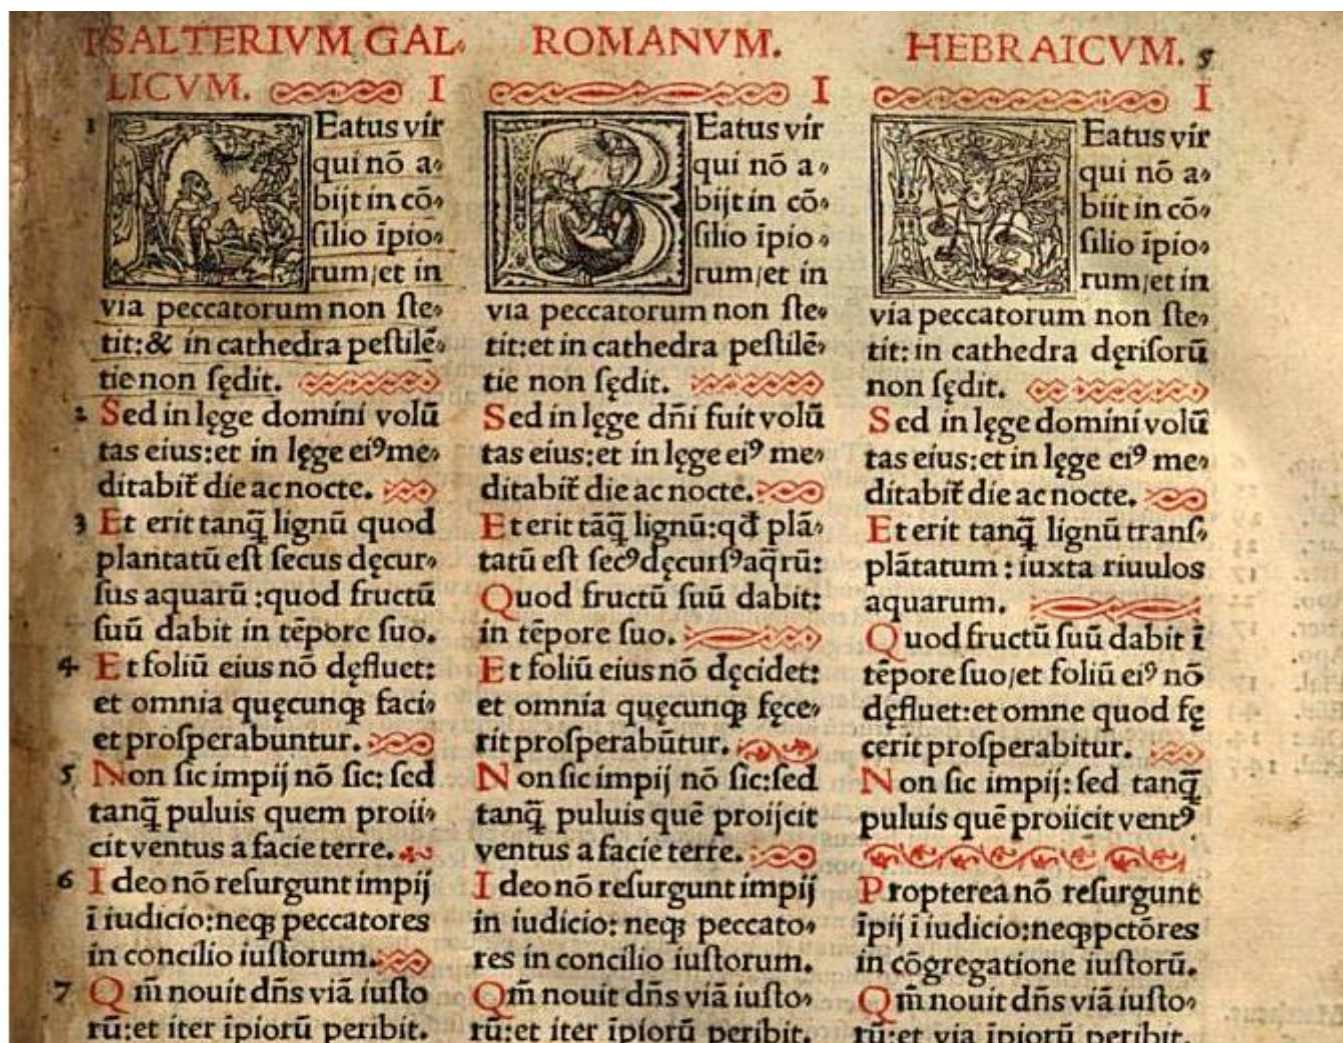 PSALTERIVM GAL-
LICVM. I
1 BEatus vir
qui nō a-
bijt in cō-
ſilio īpio-
rum/et in
via peccatorum non ſte-
tit:& in cathedra peſtilē-
tie non ſędit.
2 Sed in lęge domini volū
tas eius:et in lęge eiꝰ me-
ditabit᷑ die ac nocte.
3 Et erit tanq̄ lignū quod
plantatū eſt ſecus dęcur-
ſus aquarū :quod fructū
ſuū dabit in tēpore ſuo.
4 Et foliū eius nō dęfluet:
et omnia quęcunqꝫ faci-
et proſperabuntur.
5 Non ſic impij nō ſic: ſed
tanq̄ puluis quem proii-
cit ventus a facie terre.
6 Ideo nō reſurgunt impij
ī iudicio:neqꝫ peccatores
in concilio iuſtorum.
7 Qm̄ nouit dn̄s viā iuſto
rū:et iter īpiorū peribit.
ROMANVM.
I
BEatus vir
qui nō a-
bijt in cō-
ſilio īpio-
rum/et in
via peccatorum non ſte-
tit:et in cathedra peſtilē-
tie non ſędit.
Sed in lęge dn̄i fuit volū
tas eius:et in lęge eiꝰ me-
ditabit᷑ die ac nocte.
Et erit tāq̄ lignū:qđ plā-
tatū eſt ſecꝰ dęcurſꝰ aq̄rū:
Quod fructū ſuū dabit:
in tēpore ſuo.
Et foliū eius nō dęcidet:
et omnia quęcunqꝫ fęce-
rit proſperabūtur.
Non ſic impij nō ſic:ſed
tanq̄ puluis quē proijcit
ventus a facie terre.
Ideo nō reſurgunt impij
in iudicio: neqꝫ peccato-
res in concilio iuſtorum.
Qm̄ nouit dn̄s viā iuſto-
rū:et iter īpiorū peribit.
HEBRAICVM. 5
I
BEatus vir
qui nō a-
biit in cō-
ſilio īpio-
rum/et in
via peccatorum non ſte-
tit: in cathedra dęriſorū
non ſędit.
Sed in lęge domini volū
tas eius:et in lęge eiꝰ me-
ditabit᷑ die ac nocte.
Et erit tanq̄ lignū tranſ-
plātatum : iuxta riuulos
aquarum.
Quod fructū ſuū dabit ī
tēpore ſuo/et foliū eiꝰ nō
dęfluet:et omne quod fę
cerit proſperabitur.
Non ſic impij: ſed tanq̄
puluis quē proiicit ventꝰ
Propterea nō reſurgunt
īpij ī iudicio:neqꝫ pctōres
in cōgregatione iuſtorū.
Qm̄ nouit dn̄s viā iuſto-
rū:et via īpiorū peribit.